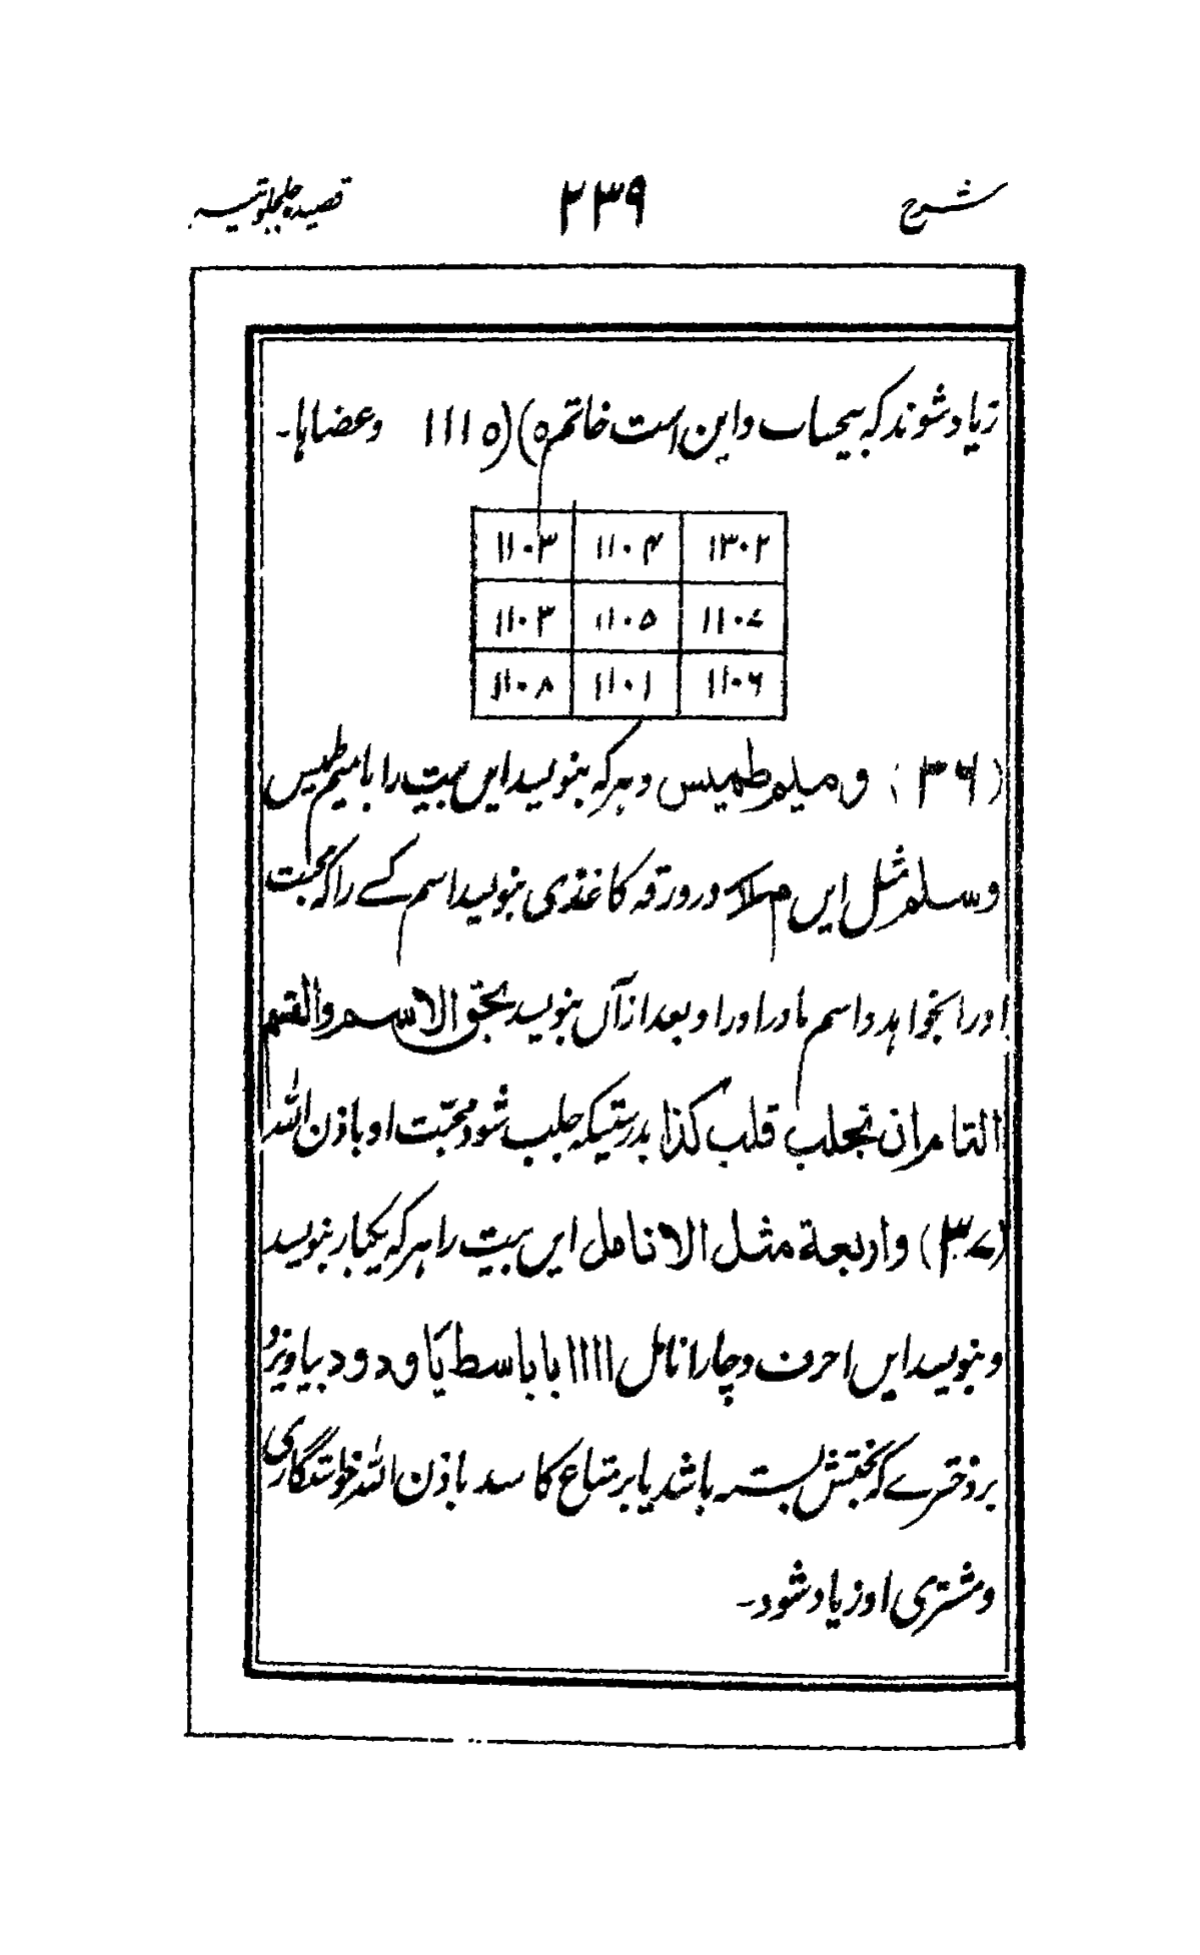 شرح ۲۳۹ قصیده جلجلوتیه
زیاد شوند که بیحساب و این است خاتم ۵)(۵ ۱۱۱ وعضاها۔
۱۱۰۳ ۱۱۰۴ ۱۳۰۲
۱۱۰۳ ۱۱۰۵ ۱۱۰۷
۱۱۰۸ ۱۱۰۱ ۱۱۰۶
(۳۶) و میم طمیس و هر که بنویسد ایں بیت را با میم طمیس
وسلم مثل ایں در ورقه کاغذی بنویسد اسم کے را که محبت
اورا بخواهد و اسم مادر اورا و بعد ازآں بنویسد بحق الاسم والقسم
التامران تجلب قلب کذا بدرستیکه جلب شود محبّت او باذن الله
(۳۷) واربعة مثل الانامل ایں بیت را هر که یکبار بنویسد
و بنویسد ایں احرف و چار انامل ۱۱۱۱ با باسط یا ودود بیاویزد
بر دخترے که بختش بسته باشد یا بر متاع کاسد باذن الله خواستگاری
و مشتری او زیاد شود۔